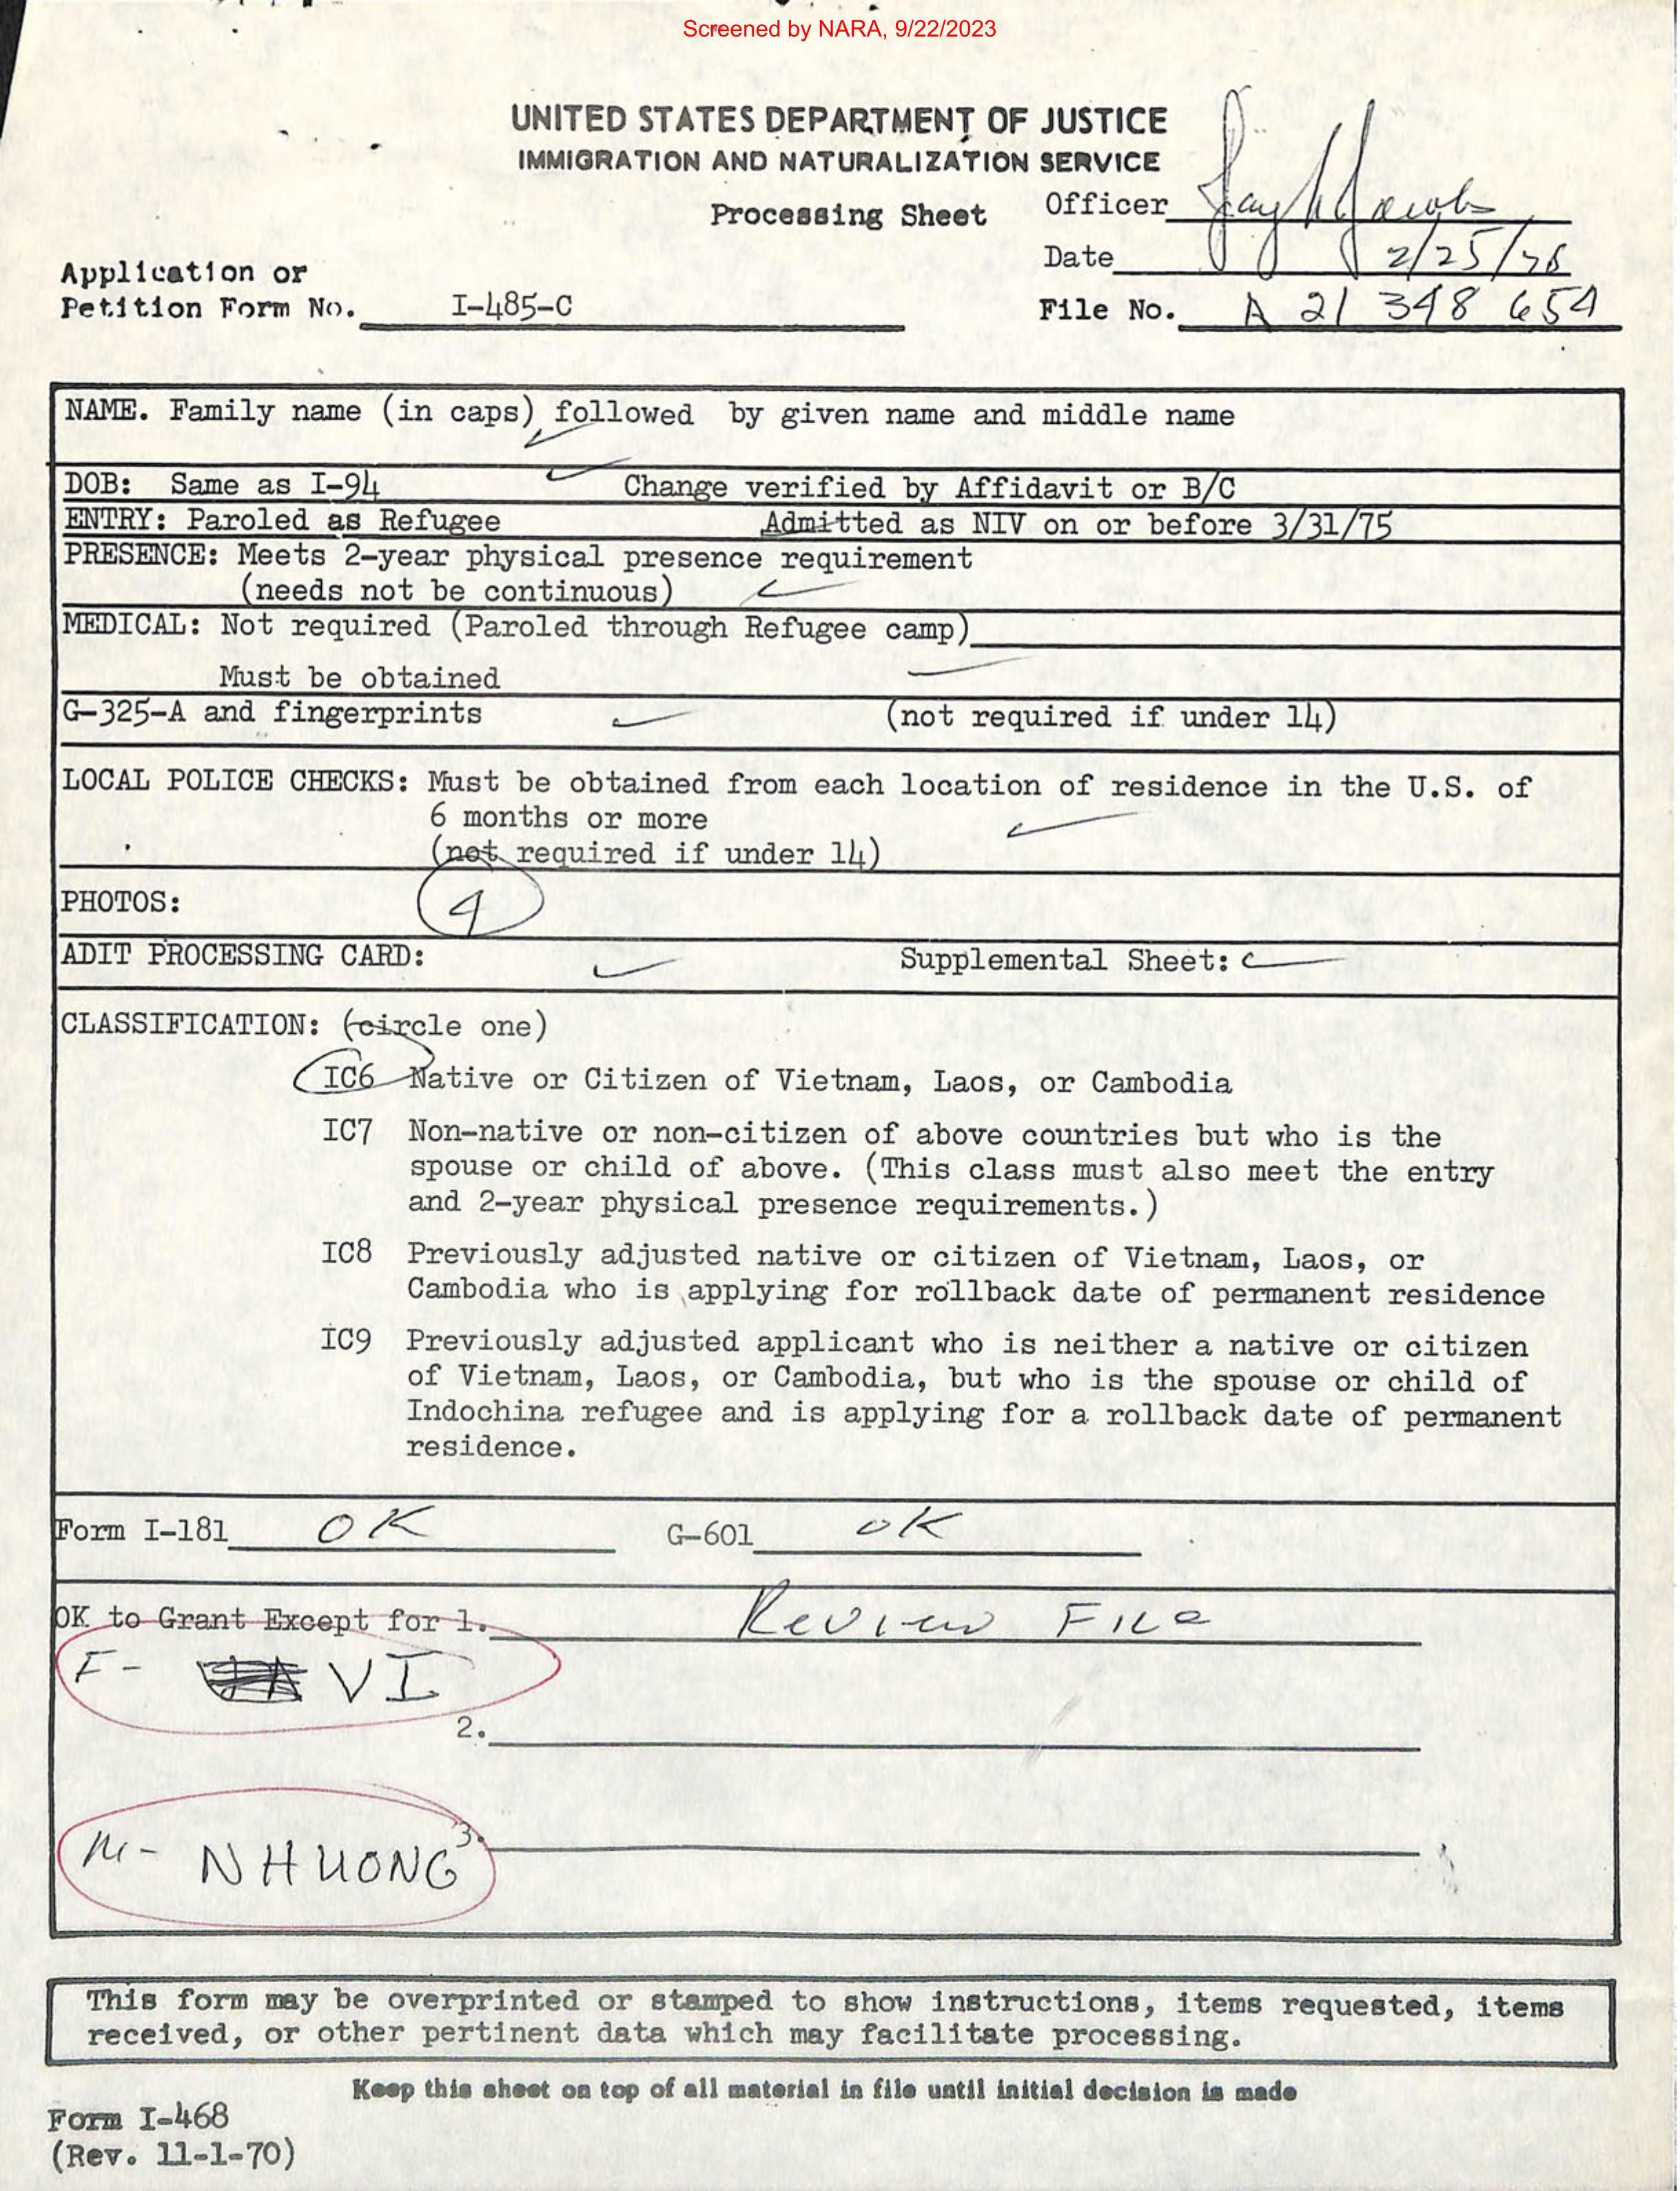 Screened by NARA, 9/22/2023
UNITED STATES DEPARTMENT OF JUSTICE
IMMIGRATION AND NATURALIZATION SERVICE
Processing Sheet
Officer
Date 2/25/78
File No. A 21 348 654
Application or
Petition Form No. I-485-C
NAME. Family name (in caps) followed by given name and middle name
DOB: Same as I-94 Change verified by Affidavit or B/C
ENTRY: Paroled as Refugee Admitted as NIV on or before 3/31/75
PRESENCE: Meets 2-year physical presence requirement
(needs not be continuous)
MEDICAL: Not required (Paroled through Refugee camp)
Must be obtained
G-325-A and fingerprints (not required if under 14)
LOCAL POLICE CHECKS: Must be obtained from each location of residence in the U.S. of
6 months or more
(not required if under 14)
PHOTOS: 4
ADIT PROCESSING CARD: Supplemental Sheet:
CLASSIFICATION: (circle one)
IC6 Native or Citizen of Vietnam, Laos, or Cambodia
IC7 Non-native or non-citizen of above countries but who is the
spouse or child of above. (This class must also meet the entry
and 2-year physical presence requirements.)
IC8 Previously adjusted native or citizen of Vietnam, Laos, or
Cambodia who is applying for rollback date of permanent residence
IC9 Previously adjusted applicant who is neither a native or citizen
of Vietnam, Laos, or Cambodia, but who is the spouse or child of
Indochina refugee and is applying for a rollback date of permanent
residence.
Form I-181 OK G-601 OK
OK to Grant Except for 1. Review File
F- VI
2.
3.
M- NHUONG
This form may be overprinted or stamped to show instructions, items requested, items
received, or other pertinent data which may facilitate processing.
Keep this sheet on top of all material in file until initial decision is made
Form I-468
(Rev. 11-1-70)